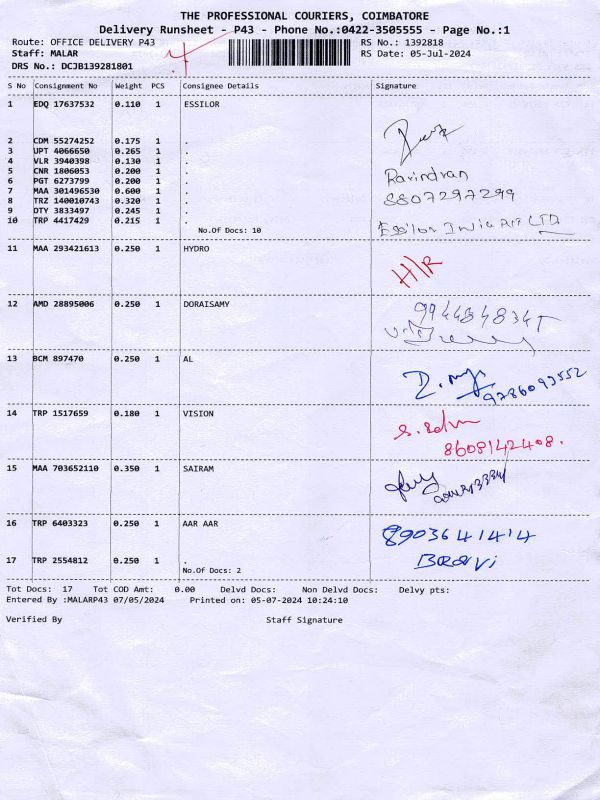 THE PROFESSIONAL COURIERS, COIMBATORE
Delivery Runsheet - P43 - Phone No.:0422-3505555 - Page No.:1
Route: OFFICE DELIVERY P43 RS No.: 1392818
Staff: MALAR RS Date: 05-Jul-2024
DRS No.: DCJB139281801
S No Consignment No Weight PCS Consignee Details Signature
1 EDQ 17637532 0.110 1 ESSILOR
2 CDM 55274252 0.175 1 .
3 UPT 4066650 0.265 1 .
4 VLR 3940398 0.130 1 .
5 CNR 1806053 0.200 1 .
6 PGT 6273799 0.200 1 .
7 MAA 301496530 0.600 1 .
8 TRZ 140010743 0.320 1 .
9 DTY 3833497 0.245 1 .
10 TRP 4417429 0.215 1 .
No.Of Docs: 10
Ravindran
8807297299
11 MAA 293421613 0.250 1 HYDRO H/R
12 AMD 28895006 0.250 1 DORAISAMY
13 BCM 897470 0.250 1 AL 9786093552
14 TRP 1517659 0.180 1 VISION
8608142408.
15 MAA 703652110 0.350 1 SAIRAM
16 TRP 6403323 0.250 1 AAR AAR 8903641414
17 TRP 2554812 0.250 1 .
No.Of Docs: 2
Tot Docs: 17 Tot COD Amt: 0.00 Delvd Docs: Non Delvd Docs: Delvy pts:
Entered By :MALARP43 07/05/2024 Printed on: 05-07-2024 10:24:10
Verified By Staff Signature